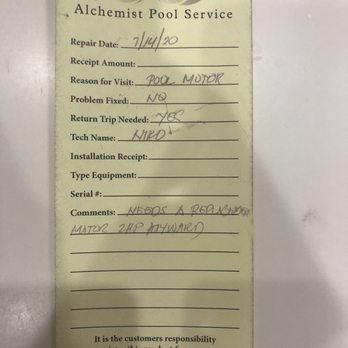 Alchemist Pool Service
Repair Date: 7/14/20
Receipt Amount:
Reason for Visit: POOL MOTOR
Problem Fixed: NO
Return Trip Needed: YES
Tech Name: NIKO
Installation Receipt:
Type Equipment:
Serial #:
Comments: NEEDS A
MOTOR 2HP HAYWARD
It is the customers responsibility